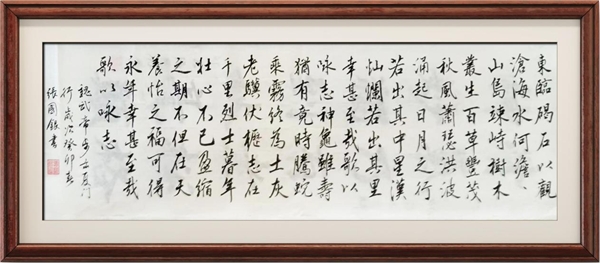 東臨碣石以觀
滄海水何澹、
山島竦峙樹木
叢生百草豐茂
秋風蕭瑟洪波
涌起日月之行
若出其中星漢
灿爛若出其里
幸甚至哉歌以
咏志神龜雖壽
猶有竟時騰蛇
乘霧終為土灰
老驥伏櫪志在
千里烈士暮年
壯心不已盈縮
之期不但在天
養怡之福可得
永年幸甚至哉
歌以咏志
魏武帝步出夏門
行歲次癸卯春
張國銀書